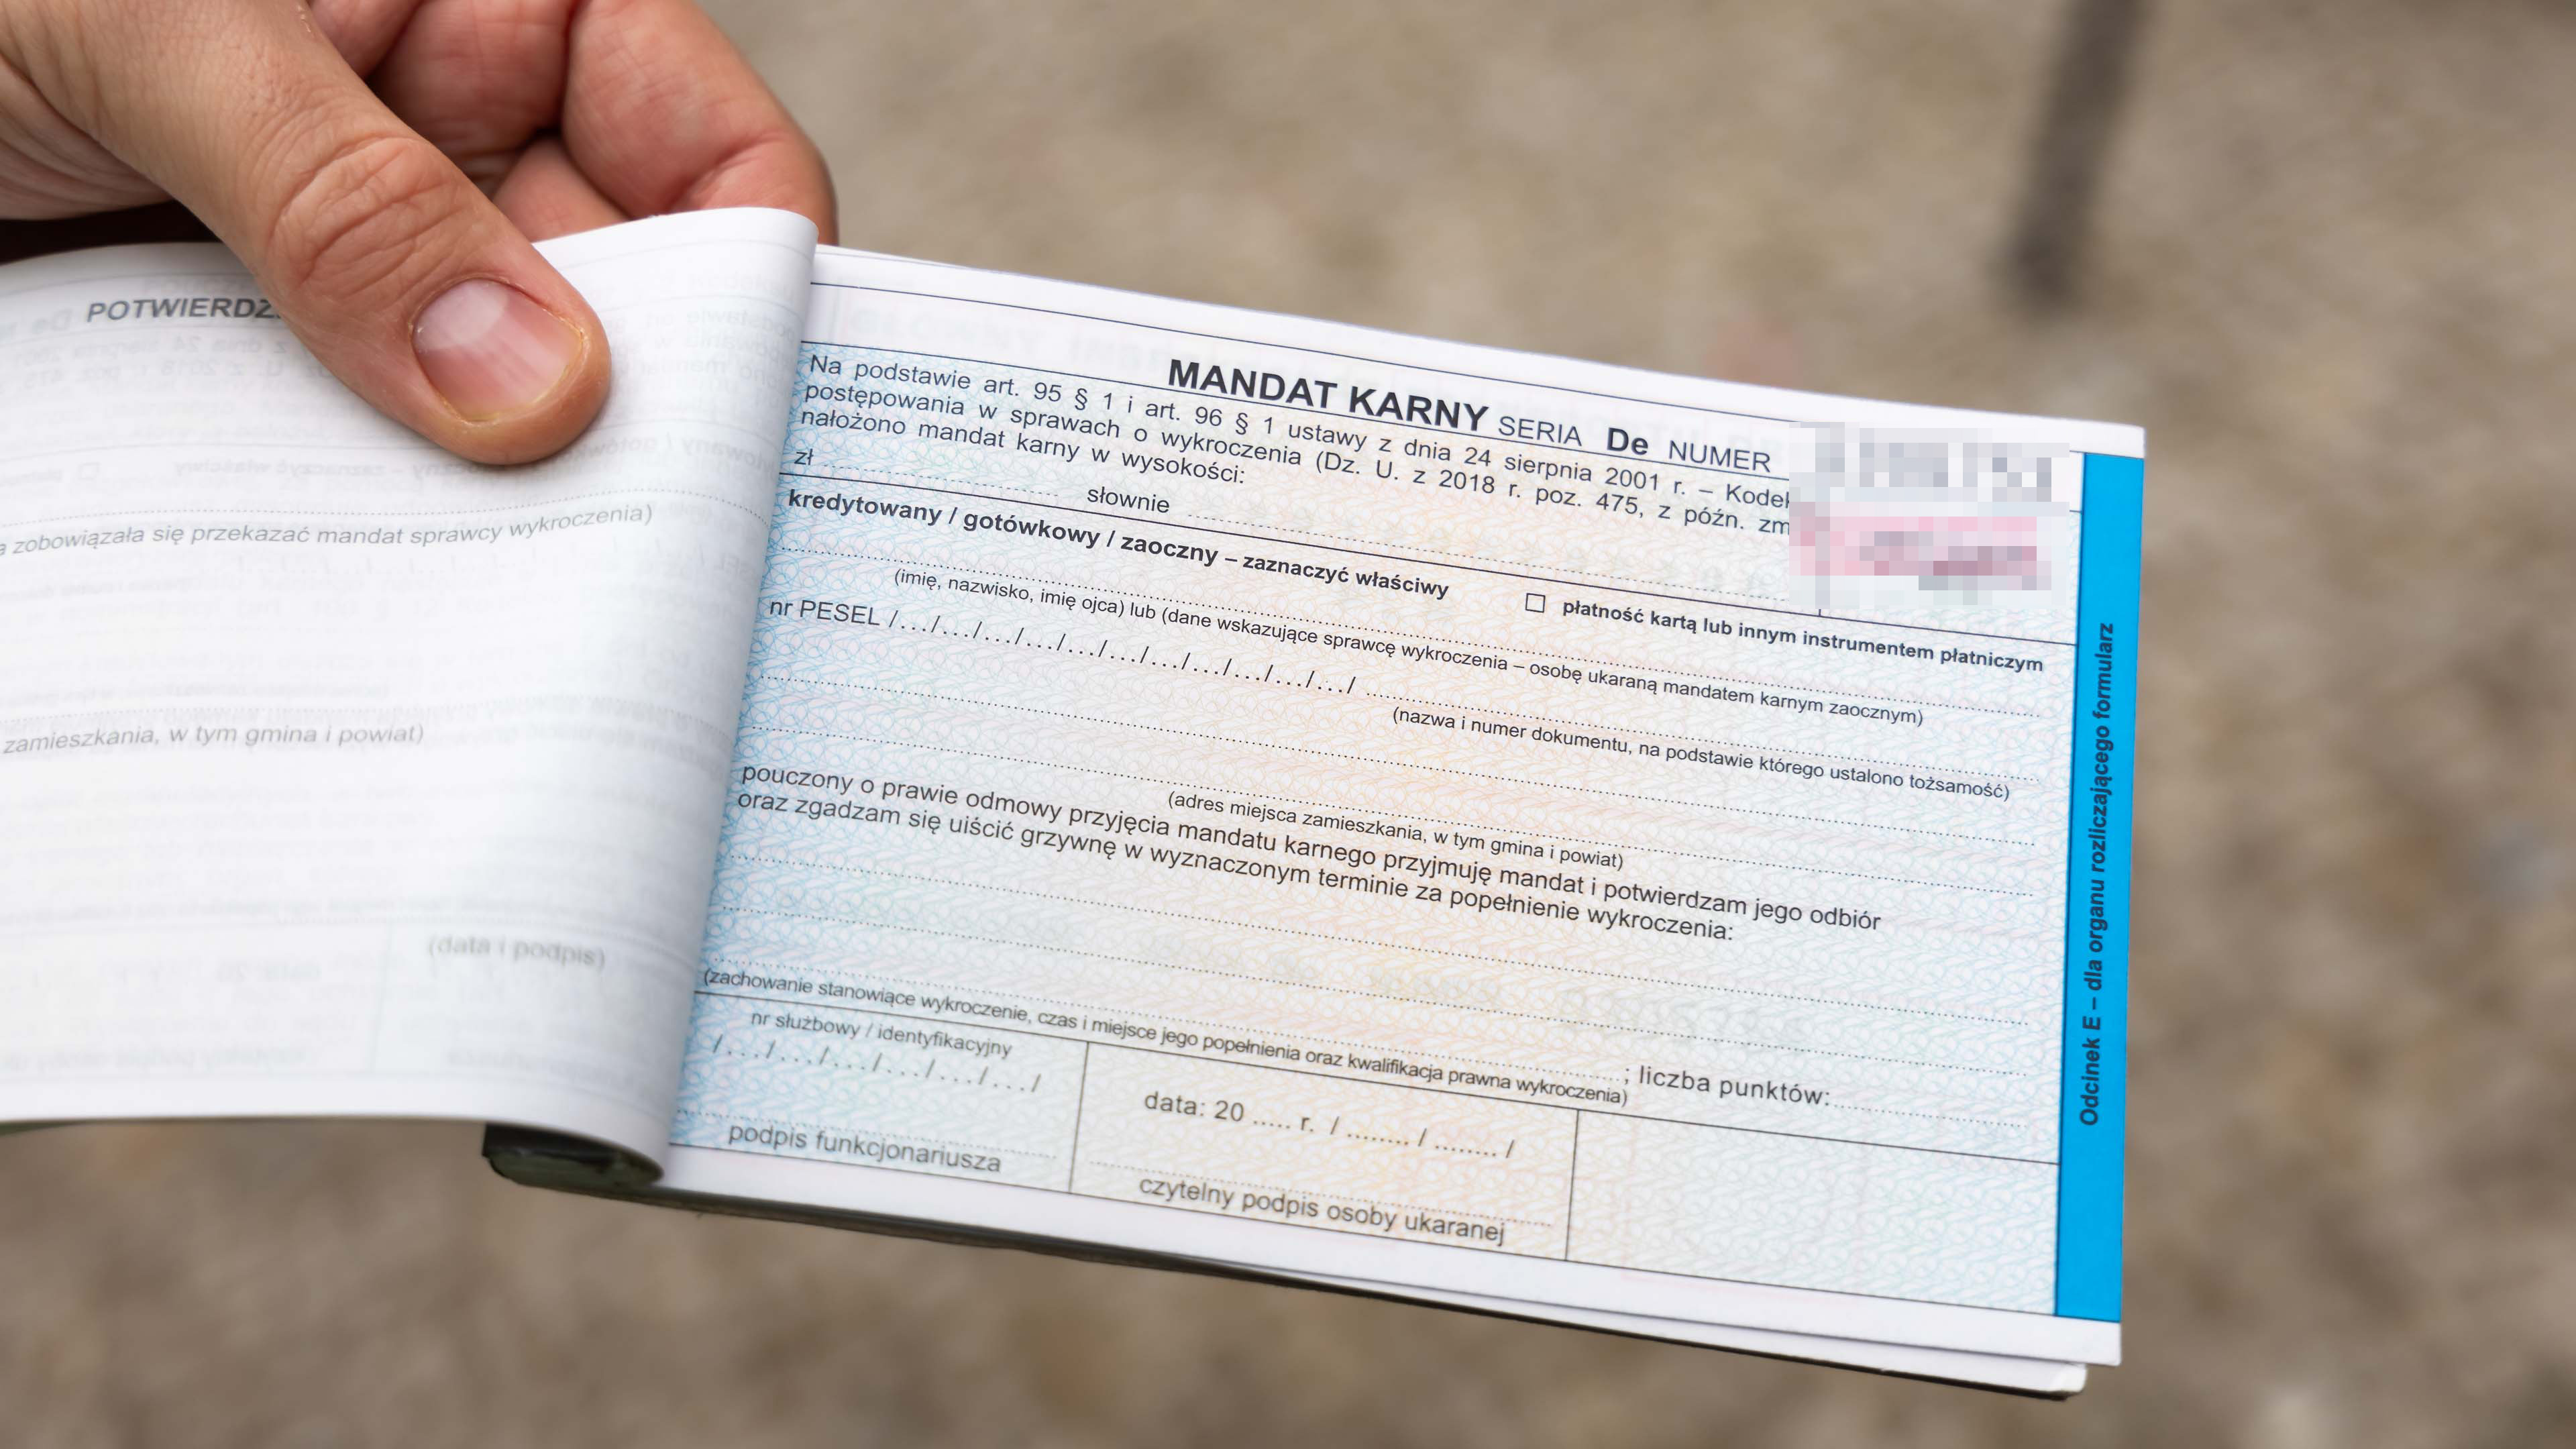 POTWIERDZ
a zobowiązała się przekazać mandat sprawcy wykroczenia)
zamieszkania, w tym gmina i powiat)
(data i podpis)
MANDAT KARNY SERIA De NUMER
Na podstawie art. 95 § 1 i art. 96 § 1 ustawy z dnia 24 sierpnia 2001 r. – Kodek
postępowania w sprawach o wykroczenia (Dz. U. z 2018 r. poz. 475, z późn. zm
nałożono mandat karny w wysokości:
zł .................... słownie ....................
kredytowany / gotówkowy / zaoczny – zaznaczyć właściwy ☐ płatność kartą lub innym instrumentem płatniczym
(imię, nazwisko, imię ojca) lub (dane wskazujące sprawcę wykroczenia – osobę ukaraną mandatem karnym zaocznym)
nr PESEL /.../.../.../.../.../.../.../.../.../.../.../ ....................
(nazwa i numer dokumentu, na podstawie którego ustalono tożsamość)
(adres miejsca zamieszkania, w tym gmina i powiat)
pouczony o prawie odmowy przyjęcia mandatu karnego przyjmuję mandat i potwierdzam jego odbiór
oraz zgadzam się uiścić grzywnę w wyznaczonym terminie za popełnienie wykroczenia:
....................; liczba punktów:....................
(zachowanie stanowiące wykroczenie, czas i miejsce jego popełnienia oraz kwalifikacja prawna wykroczenia)
nr służbowy / identyfikacyjny
/.../.../.../.../.../.../
podpis funkcjonariusza
data: 20 ..... r. / ........ / ........ /
czytelny podpis osoby ukaranej
Odcinek E – dla organu rozliczającego formularz